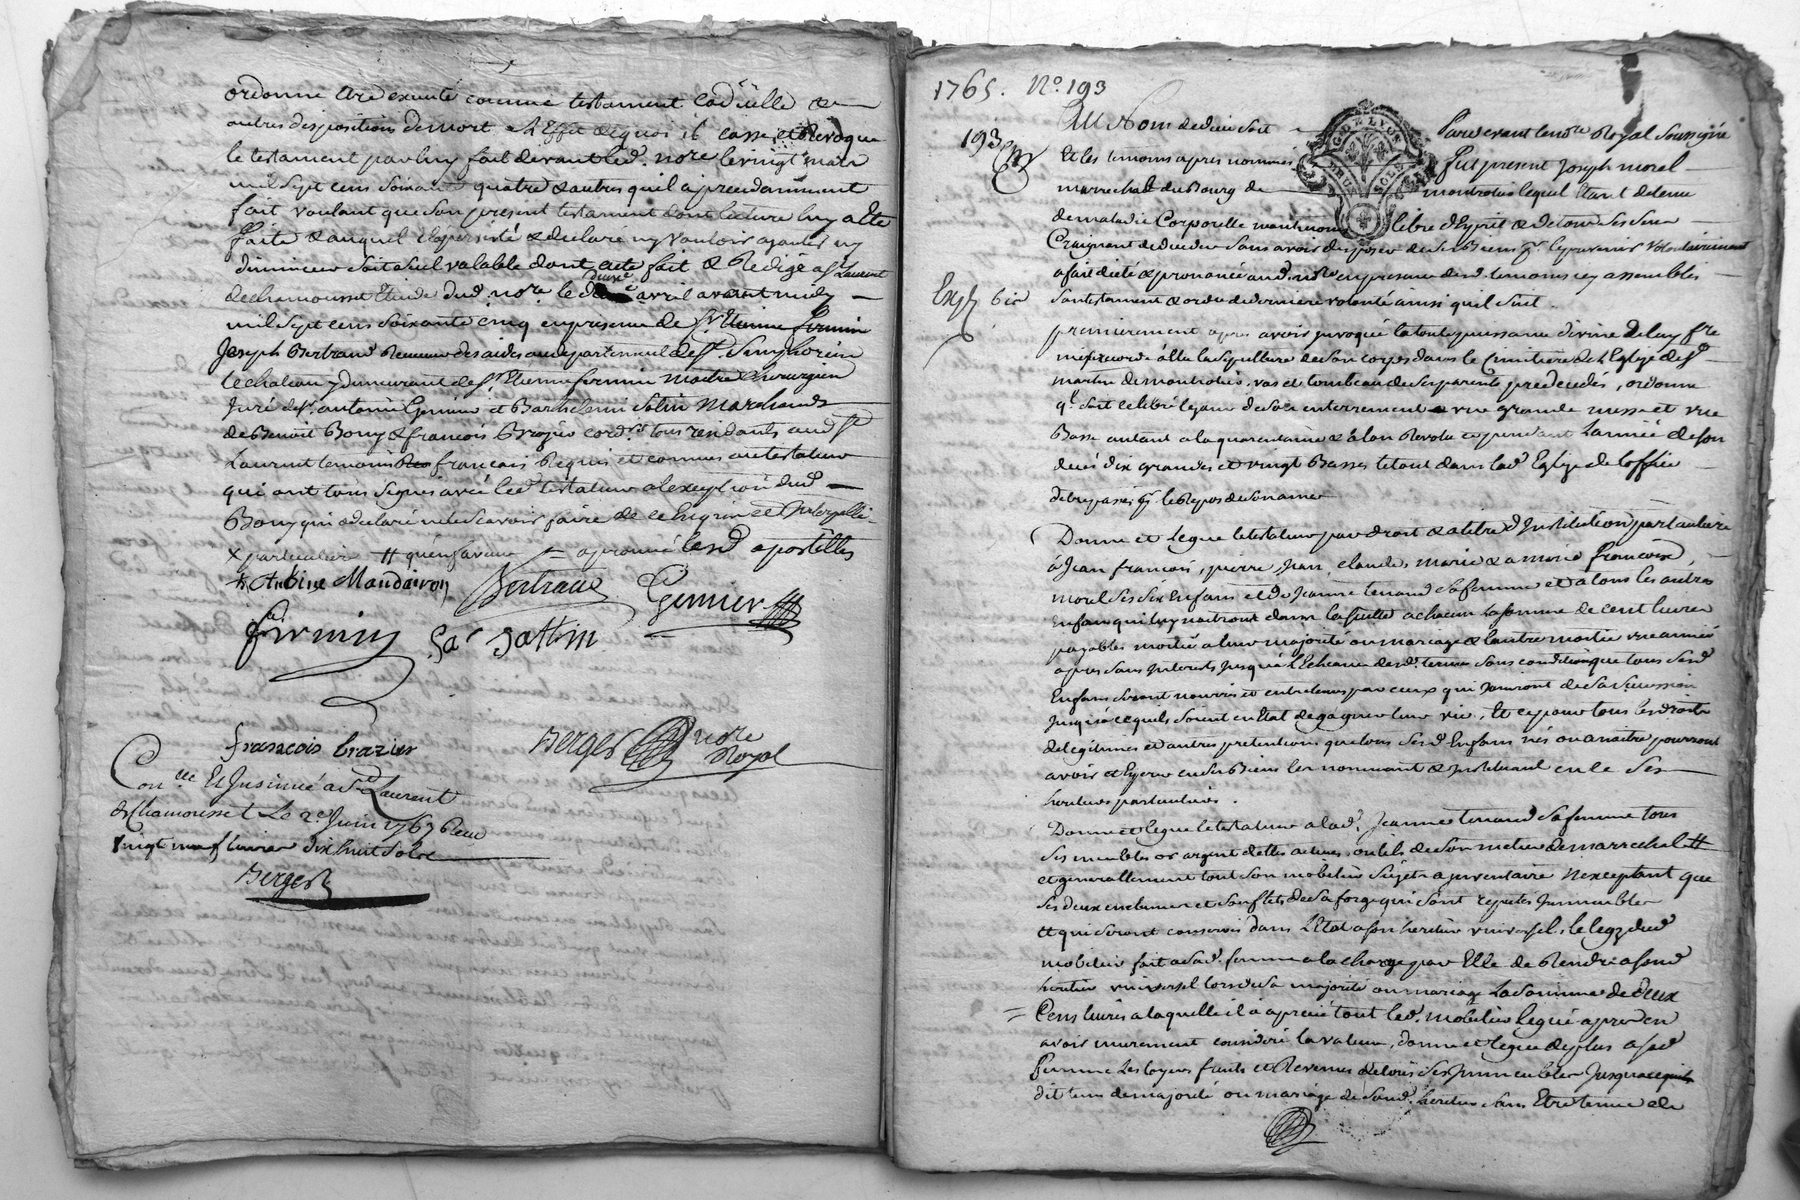 ordonne etre executé comme testament codicille &
autres dispositions de mort a l'Effet de quoi il casse et Revoque
le testament par luy fait devant led. no.re le vingt mars
mil sept cens soixante quatre & autres quil a precedamment
fait voulant que son present testament dont lecture luy a Eté
faite & auquel il a persisté & declaré ny vouloir ajouter ny
diminuer soit seul valable dont acte fait & Redigé a St Laurent
de chamousset Etude dud. no.re le douze avril avant midy
mil sept cens soixante cinq en presence de
Joseph Bertrand Receveur des aides au departement de St. Simphorien
le chateau y demeurant de Sr. Etienne firmin Maitre chirurgien
Juré de Sr. antoine Gemier et Barthelemi Sotin Marchands
de Benoit Bony & françois Brazier cord.rs tous residants aud. St
Laurent temoins françois Requis et connus au testateur
qui ont tous signés avec led. testateur a lexception dud.
Bony qui a declaré ne le scavoir faire de ce Enquis et Interpellé
x particulier # qu'en faveur approuvé lesd apostilles
Antoine Maudairon Bertrand Gemier
firmin Sattin
françois brazier Berger no.re Royal
Con.lé Et Insinué a St Laurent
de Chamousset Le 2e. Juin 1767 Receu
vingt neuf livres dix huit sols
Berger
1765. No. 193
193
Au Nom de dieu soit Pardevant le no.re Royal soussigné
Et les temoins apres nommés fut present Joseph morel
marrechal du Bourg de montrotier lequel etant detenu
de maladie Corporelle neantmoins libre d'Esprit & de tous ses sens
Craignant de deceder sans avoir disposé de ses Biens pr. le prevenir volontairement
a fait dicté & prononcé aud. no.re en presence desd. temoins icy assemblés
son testament & ordre de derniere volonté ainsi quil suit
Exp.
premierement apres avoir invoqué la toute puissance divine de luy fre
misericorde a Elu la sepulture de son corps dans le cimetiere de L'Eglise de St
martin de montrotier, vas et tombeau de ses parents predecedés, ordonne
ql. soit celebré le jour de son enterrement une grande messe et une
Basse autant a la quarantaine & a l'an Revolu et pendant L'année de son
decès dix grandes et vingt Basses le tout dans lad. Eglise de l'office
de trepassés pr. le Repos de son ame
Donne et Legue le testateur par droit & a titre d'Institution particuliere
à Jean françois, pierre, Jean, claude, marie & a marie françoise
morel ses six Enfans et de Jeanne tenand sa femme et a tous les autres
Enfans qui luy naitront dans la suitte a chacun La somme de cent livres
payables moitié a leur majorité ou mariage & l'autre moitié une année
apres sans Interets jusqu'a L'Echeance desd. termes sous condition que tous sesd
Enfans seront nourris et entretenus par ceux qui Jouiront de sa succession
jusqu'a ce quils soient en Etat de gagner leur vie, Et ce pour tous les droits
de legitimes et autres pretentions que tous sesd Enfans nés ou a naitre pourront
avoir & Exiger en ses Biens les nommant & Instituant en ce ses
heritiers particuliers.
Donne et legue le testateur a lad. Jeanne tenand sa femme tous
ses meubles or argent dettes actives, outils de son metier de marrechal #
et generallement tout son mobilier sujet a inventaire n'exceptant que
ses deux enclumes et soufflets de sa forge qui sont reputés Immeubles
# qui seront conservés dans L'Etat a son heritier universel, le legs dud
mobilier fait a sad. femme a la charge par Elle de Rendre a sond
heritier universel lors de sa majorité ou mariage La somme de deux
Cens livres a laquelle il a aprecié tout led. mobilier legué apres en
avoir murement consideré la valeur, donne et legue de plus a sad
femme Les loyers fruits et Revenus de tous ses Immeubles Jusqu'a ce quils
dit tems de majorité ou mariage de sond. heritier sans Etre tenue de